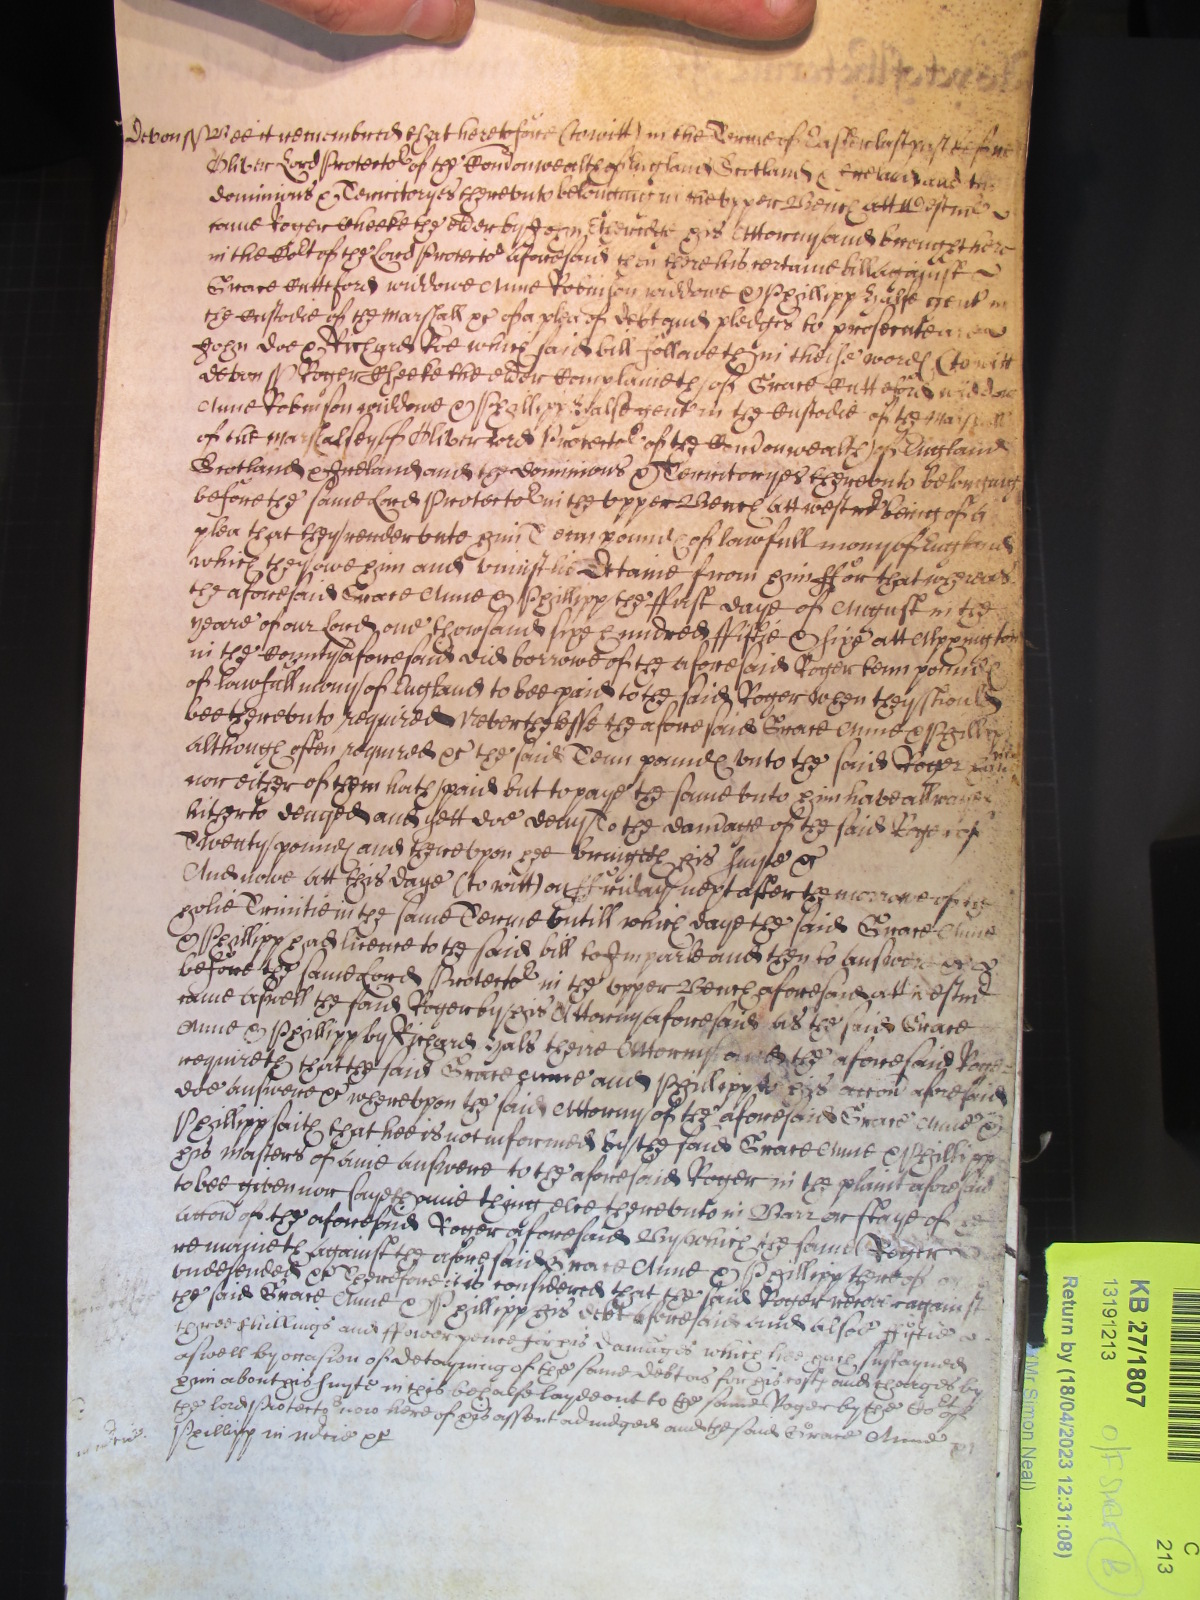 Devon ss Bee it remembred that heretofore (to witt) in the Terme of Easter last past before
Oliver Lord Protector of the Comonwealth of England Scotland & Ireland and the
dominions & Territoryes thereunto belonging in the upper Bench att Westmr
came Roger Cheeke the elder by John his Attorny and brought here
in the Cort of the Lord Protector aforesaid then there his certaine bill against
Grace Cutteford widdowe Anne Robinson widdowe & Phillipp Halse gent in
the custodie of the Marshall &c of a plea of debt and pledges to prosecute
John Doe & Richard Roe which said bill followeth in theise words (to witt
Devon ss Roger Cheeke the elder Complaineth of Grace Cutteford widdow
Anne Robinson widdowe & Phillipp Halse gent in the Custodie of the Marshall
of the Marshalsey of Oliver Lord Protector of the Comonwealth of England
Scotland & Ireland and the dominions & Territoryes thereunto belonging
before the same Lord Protector in the upper Bench att Westmr being of a
plea that they render unto him Tenn pounds of lawfull mony of England
which they owe him and uniustlie detaine from him ffor that whereas
the aforesaid Grace Anne & Phillipp the ffirst daye of August in the
yeare of our Lord one thowsand sixe hundred ffiftie & sixe att Uppington
in the County aforesaid did borrowe of the aforesaid Roger tenn pounds
of lawfull mony of England to bee paid to the said Roger when they should
bee thereunto required Neverthelesse the aforesaid Grace Anne & Phillipp
although often required &c the said Tenn pounds unto the said Roger
nor either of them hath paid but to paye the same unto him have allwayes
hitherto denyed and yett doe deny To the damage of the said Roger of
Twenty pounds and thereupon hee bringeth his suyte &c
And nowe att this daye (to witt) on ffriday next after the morrowe of the
holie Trinitie in the same Terme untill which daye the said Grace Anne
& Phillipp had licence to the said bill to Imparle and then to answere &c
before the same Lord Protector in the upper Bench aforesaid att Westmr
came aswell the said Roger by his Attorny aforesaid as the said Grace
Anne & Phillipp by Richard Hals there Attorny and the aforesaid Roger
requireth that the said Grace Anne and Phillipp to his accon aforesaid
doe answere &c whereupon the said Attorny of the aforesaid Grace Anne &
Phillipp saith that hee is not informed by the said Grace Anne & Phillipp
his Masters of anie answere to the aforesaid Roger in the plaint aforesaid
to bee given nor sayeth anie thing else thereunto in Barr or staye of the
accon of the aforesaid Roger aforesaid By which the same Roger
remaineth against the aforesaid Grace Anne & Phillipp thereof
undefended &c Therefore it is considered that the said Roger recover against
the said Grace Anne & Phillipp his debt aforesaid and alsoe ffiftie
three shillings and ffower pence for his damages which hee hath sustayned
aswell by occasion of detayning of the same debt as for his costs and charges by
him about his suyte in this behalfe layde out to the same Roger by the Cort of
the Lord Protector now here of his assent adiudged and the said Grace Anne &
Phillipp in mercie &c
KB 27/1807
13191213
Return by (18/04/2023 12:31:08)
(Mr Simon Neal)
C
213
B